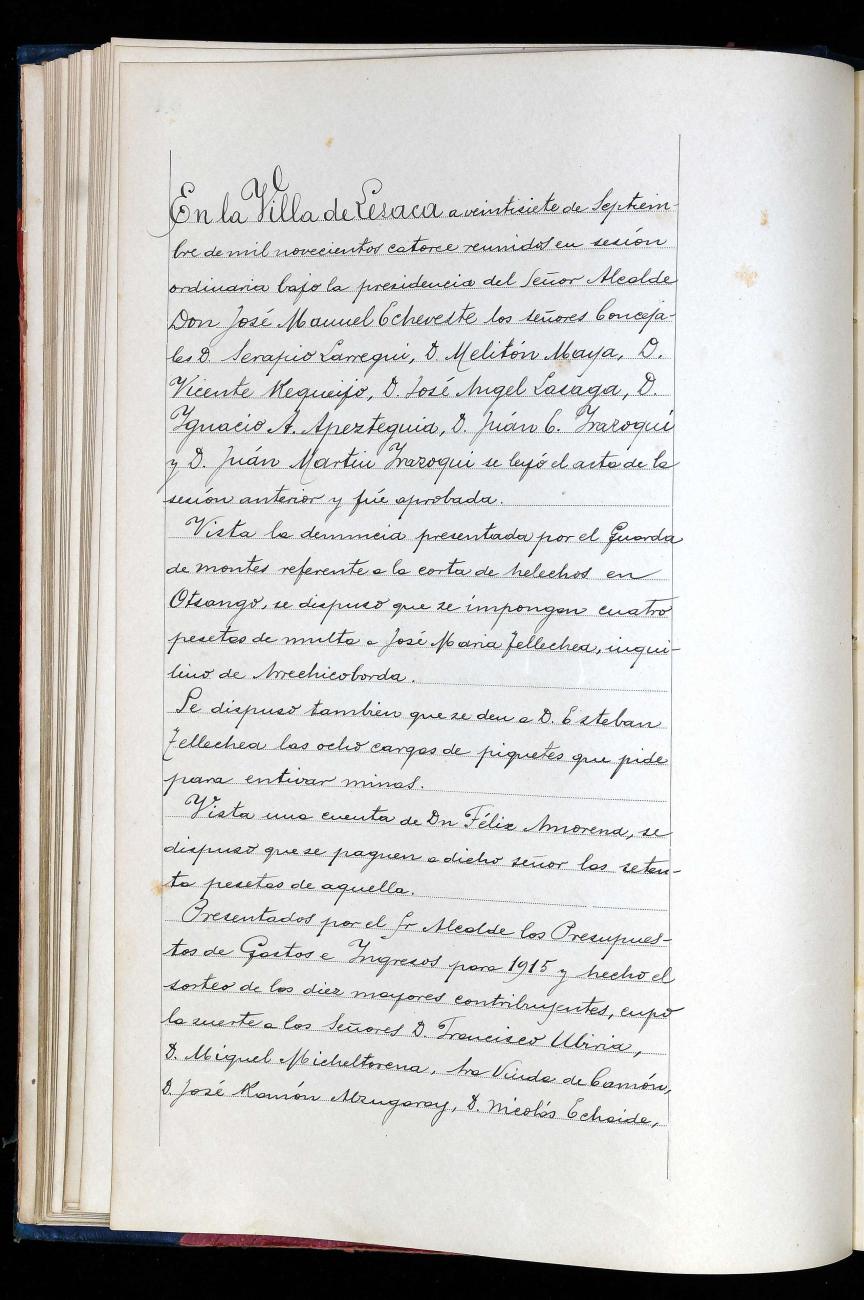 En la Villa de Lesaca a veintisiete de Septiem-
bre de mil novecientos catorce reunidos en sesión
ordinaria bajo la presidencia del Señor Alcalde
Don José Manuel Echeveste los señores Conceja-
les D. Serapio Larregui, D. Melitón Maya, D.
Vicente Requeijo, D. José Angel Lasaga, D.
Ignacio A. Apezteguia, D. Juán C. Irazoqui
y D. Juán Martin Irazoqui se leyó el acta de la
sesión anterior y fúe aprobada.
Vista la denuncia presentada por el Guarda
de montes referente a la corta de helechos en
Otsango, se dispuso que se impongan cuatro
pesetas de multa a José Maria Tellechea, inqui-
lino de Arrechicoborda.
Se dispuso también que se den a D. Esteban
Tellechea las ocho cargas de piquetes que pide
para entivar minas.
Vista una cuenta de Dn Félix Amorena, se
dispuso que se paguen a dicho señor las seten-
ta pesetas de aquella.
Presentados por el Sr Alcalde los Presupues-
tos de Gastos e Ingresos para 1915 y hecho el
sorteo de los diez mayores contribuyentes, cupo
la suerte a los Señores D. Francisco Ubiria,
D. Miguel Micheltorena, Sra Viuda de Camón,
D. José Ramón Alzugaray, D. Nicolás Echaide,